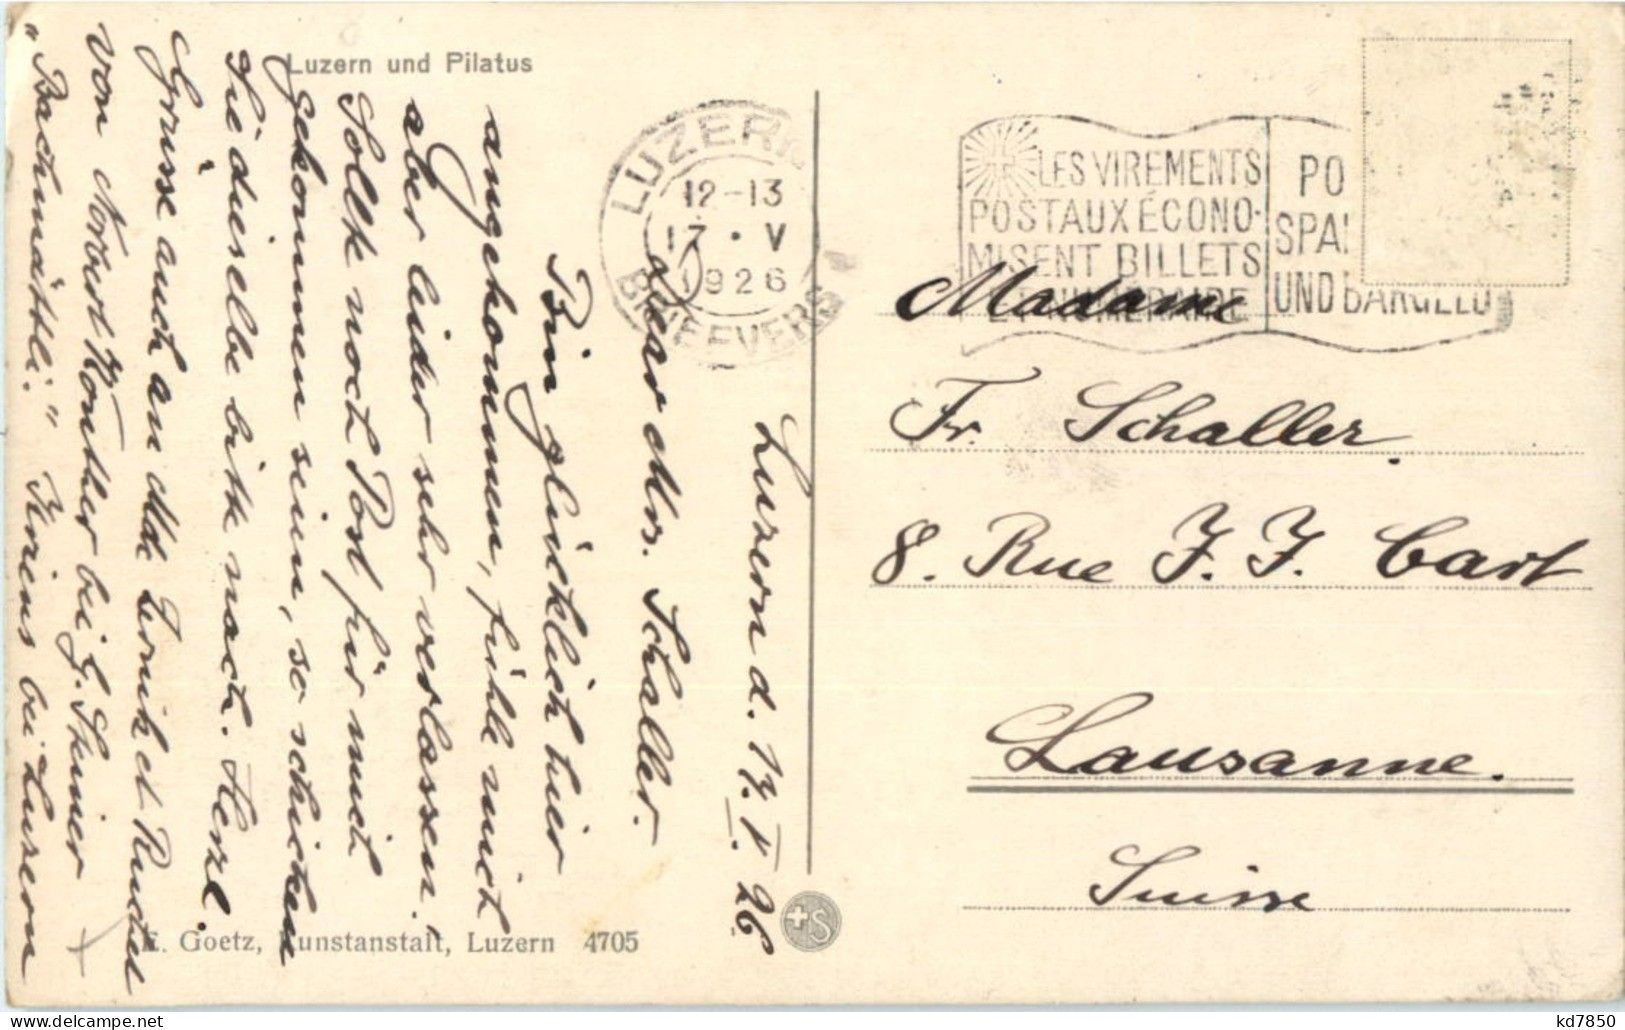 Luzern und Pilatus
Luzern d. 17. V. 26.
Dear Mrs. Schaller.
Bin glücklich hier
angekommen, fühle mich
aber leider sehr verlassen.
Sollte noch Post für mich
gekommen sein, so schicken
Sie dieselbe bitte nach. Herzl.
Grüsse auch an Mde et
von Norbert Könther bei G. Theiner
"Bachmättli." Kriens bei Luzern
E. Goetz, Kunstanstalt, Luzern 4705
+S
LUZERN
12-13
17 • V
1926
BRIEFVERS
LES VIREMENTS
POSTAUX ÉCONO-
MISENT BILLETS
ET NUMÉRAIRE
PO
SPA
UND BARGELD
Madame
Fr. Schaller.
8. Rue J. J. Cart
Lausanne.
Suisse
kd7850